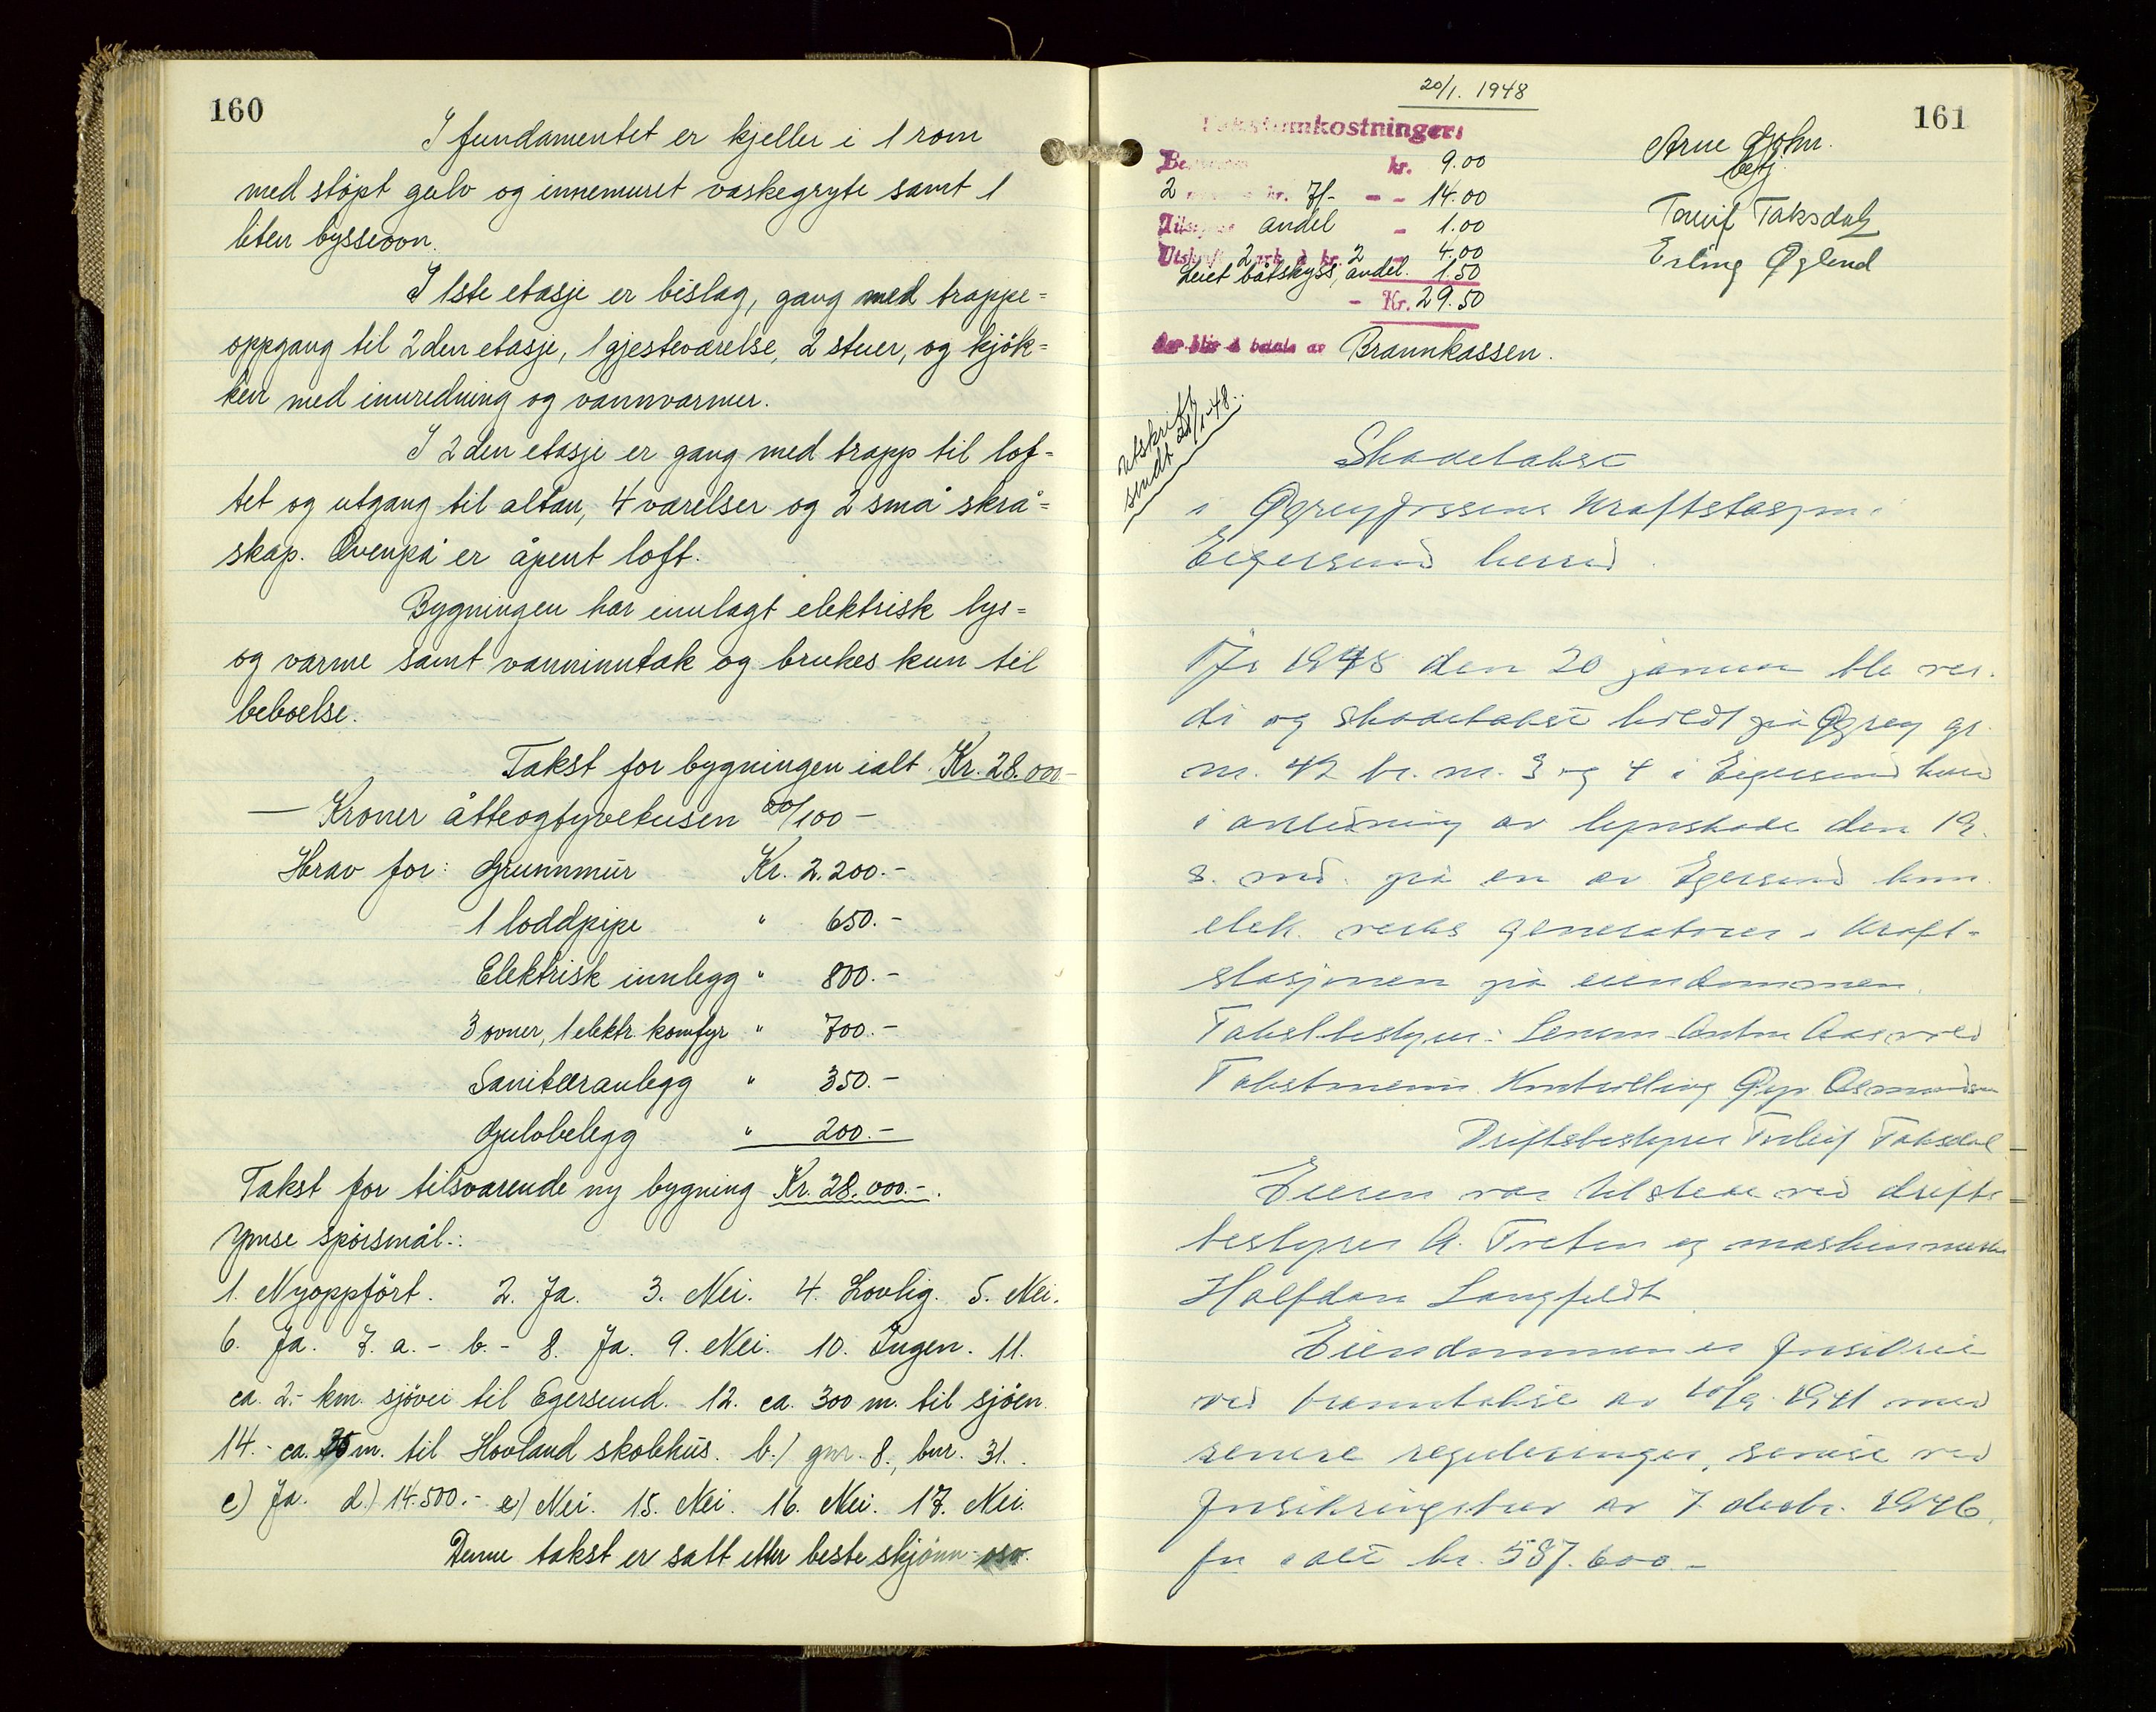 160
I fundamentet er kjeller i 1 rom
med støpt gulv og innemuret vaskegryte samt 1
liten byssovn.
I 1ste etasje er bislag, gang med trappe=
oppgang til 2den etasje, 1 gjesteværelse, 2 stuer, og kjøk=
ken med innredning og vannvarmer.
I 2den etasje er gang med trapp til lof=
tet og utgang til altan, 4 værelser og 2 små skrå=
skap. Ovenpå er åpent loft.
Bygningen har innlagt elektrisk lys=
og varme samt vanninntak og brukes kun til
beboelse.
Takst for bygningen ialt Kr. 28.000-
— Kroner åtteogtyvetusen 00/100 –
Herav for: Grunnmur Kr. 2.200.-
1 loddpipe " 650.-
Elektrisk innlegg " 800.-
3 ovner, 1 elektr. komfyr " 700.-
Sanitæranlegg " 350.-
Gulvbelegg " 200.-
Takst for tilsvarende ny bygning Kr. 28.000.-.
Ymse spørsmål.:
1. Nyoppført. 2. Ja. 3. Nei. 4. Lovlig. 5. Nei.
6. Ja. 7. a. - b. - 8. Ja. 9. Nei. 10. Ingen. 11.
ca. 2.- km. sjøvei til Egersund. 12. ca. 300 m. til sjøen.
14.- ca. 35 m. til Hovland skolehus. b.) gnr. 8., bnr. 31.
c) Ja. d.) 14.500.- e) Nei. 15. Nei. 16. Nei. 17. Nei.
Denne takst er satt etter beste skjønn osv.
20/1. 1948
161
Takstomkostninger:
kr. 9.00
2 kr. 7/- - - 14.00
andel - 1.00
Utskrift 2 ark à kr. 2 - 4.00
Leiet båtskyss, andel. 1.50
- Kr. 29.50
betales av Brannkassen.
Arne
Taksdal
Erling Øglend
Utskrift
sendt 21/1-48.
Skadetakst
i Øgreyfossens Kraftstasjon i
Eigersund herred.
År 1948 den 20 januar ble ver-
di og skadetakst holdt på Øgrey gr.
nr. 42 br. nr. 3 og 4 i Eigersund herred
i anledning av lynskade den 19.
s. md. på en av Egersund kom.
elek. verks generatorer i Kraft-
stasjonen på eiendommen.
Takstbestyrer: Lensm. Anton Aasved
Takstmenn Øyv. Osmundsen
Driftsbestyrer Torleif Taksdal
Eieren var tilstede ved drifts=
bestyrer A. Treten og maskinmester
Halfdan Langfeldt
Eiendommen er forsikret
ved branntakst av 10/9 1941 med
senere reguleringer, senest ved
forsikringsbrev av 7. desbr. 1946
for i alt kr. 587.600.-